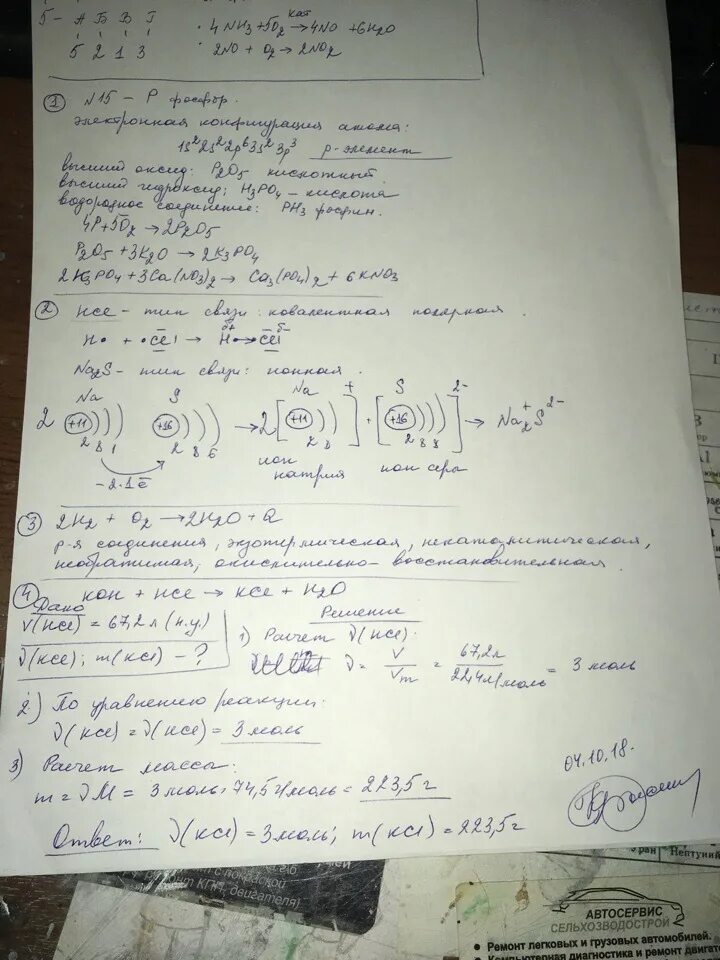 5 - А Б В Г
5 2 1 3
· 4NH3 + 5O2 кат → 4NO + 6H2O
· 2NO + O2 → 2NO2
① N15 – P фосфор.
электронная конфигурация атома:
1s² 2s² 2p⁶ 3s² 3p³ р-элемент
высший оксид: P2O5 кислотный.
высший гидроксид: H3PO4 – кислота
водородное соединение: PH3 фосфин.
4P + 5O2 → 2P2O5
P2O5 + 3K2O → 2K3PO4
2K3PO4 + 3Ca(NO3)2 → Ca3(PO4)2 + 6KNO3
② HCl – тип связи: ковалентная полярная.
H• + •Cl → H^δ+ → Cl^δ-
Na2S – тип связи: ионная.
Na S Na + S 2-
2 (+11))) (+16))) → 2 [(+11)))] + [(+16)))] → Na2⁺S²⁻
2 8 1 2 8 6 2 8 2 8 8
-2·1ē
ион натрия
ион серы
③ 2H2 + O2 → 2H2O + Q
р-я соединения, экзотермическая, некаталитическая,
необратимая, окислительно-восстановительная.
④ KOH + HCl → KCl + H2O
Дано
V(HCl) = 67,2л (н.у.)
ν(KCl); m(KCl) – ?
Решение
1) Расчет ν(HCl):
ν = V/Vm = 67,2л / 22,4л/моль = 3 моль
2) По уравнению реакции:
ν(KCl) = ν(HCl) = 3 моль
3) Расчет массы:
m = νM = 3 моль · 74,5 г/моль = 223,5 г
Ответ: ν(KCl) = 3 моль; m(KCl) = 223,5 г
04.10.18.
Нептуний
АВТОСЕРВИС
СЕЛЬХОЗВОДСТРОЙ
• Ремонт легковых и грузовых автомобилей.
• Компьютерная диагностика и ремонт двигат